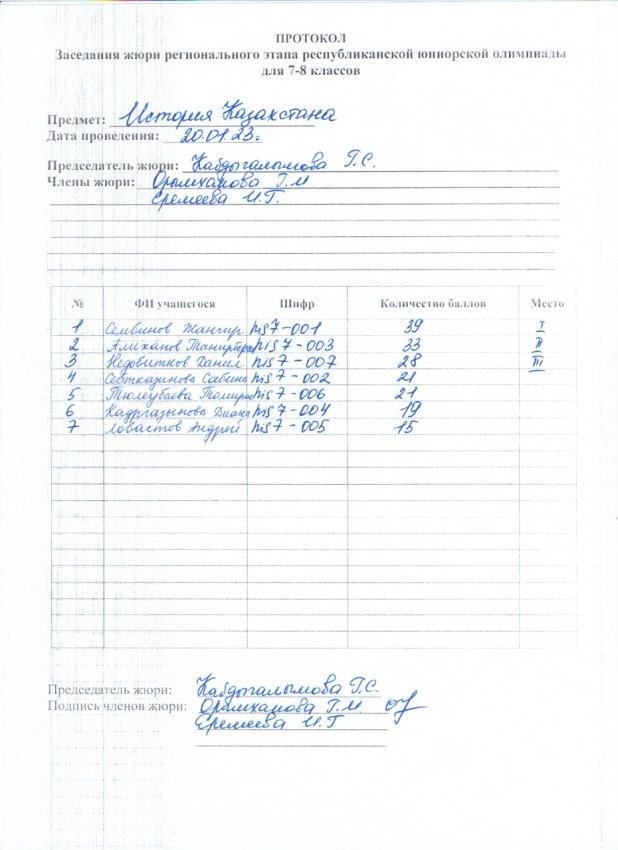 ПРОТОКОЛ
Заседания жюри регионального этапа республиканской юниорской олимпиады
для 7-8 классов
Предмет: История Казахстана
Дата проведения: 20.01.23г.
Председатель жюри: Кабдыгалымова Г.С.
Члены жюри: Орымханова Г.М
Еремеева И.Г.
№ ФИ учащегося Шифр Количество баллов Место
1 Сембинов Жангир his7-001 39 I
2 Алиханов his7-003 33 II
3 Недовитков Данил his7-007 28 III
4 his7-002 21
5 Тюлеубаева his7-006 21
6 Кадргазынова Диана his7-004 19
7 Ловастов Андрей his7-005 15
Председатель жюри: Кабдыгалымова Г.С.
Подпись членов жюри: Орымханова Г.М.
Еремеева И.Г